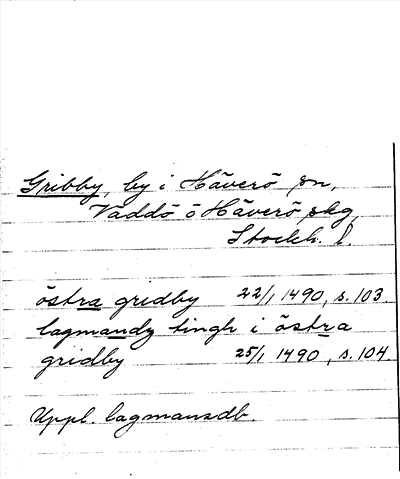 Gribby, by i Häverö sn,
Väddö o Häverö skg,
Stockh. l.
östra gridby 22/1 1490, s. 103.
lagmandz tingh i östra
gridby 25/1 1490, s. 104
Uppl. lagmansdb.